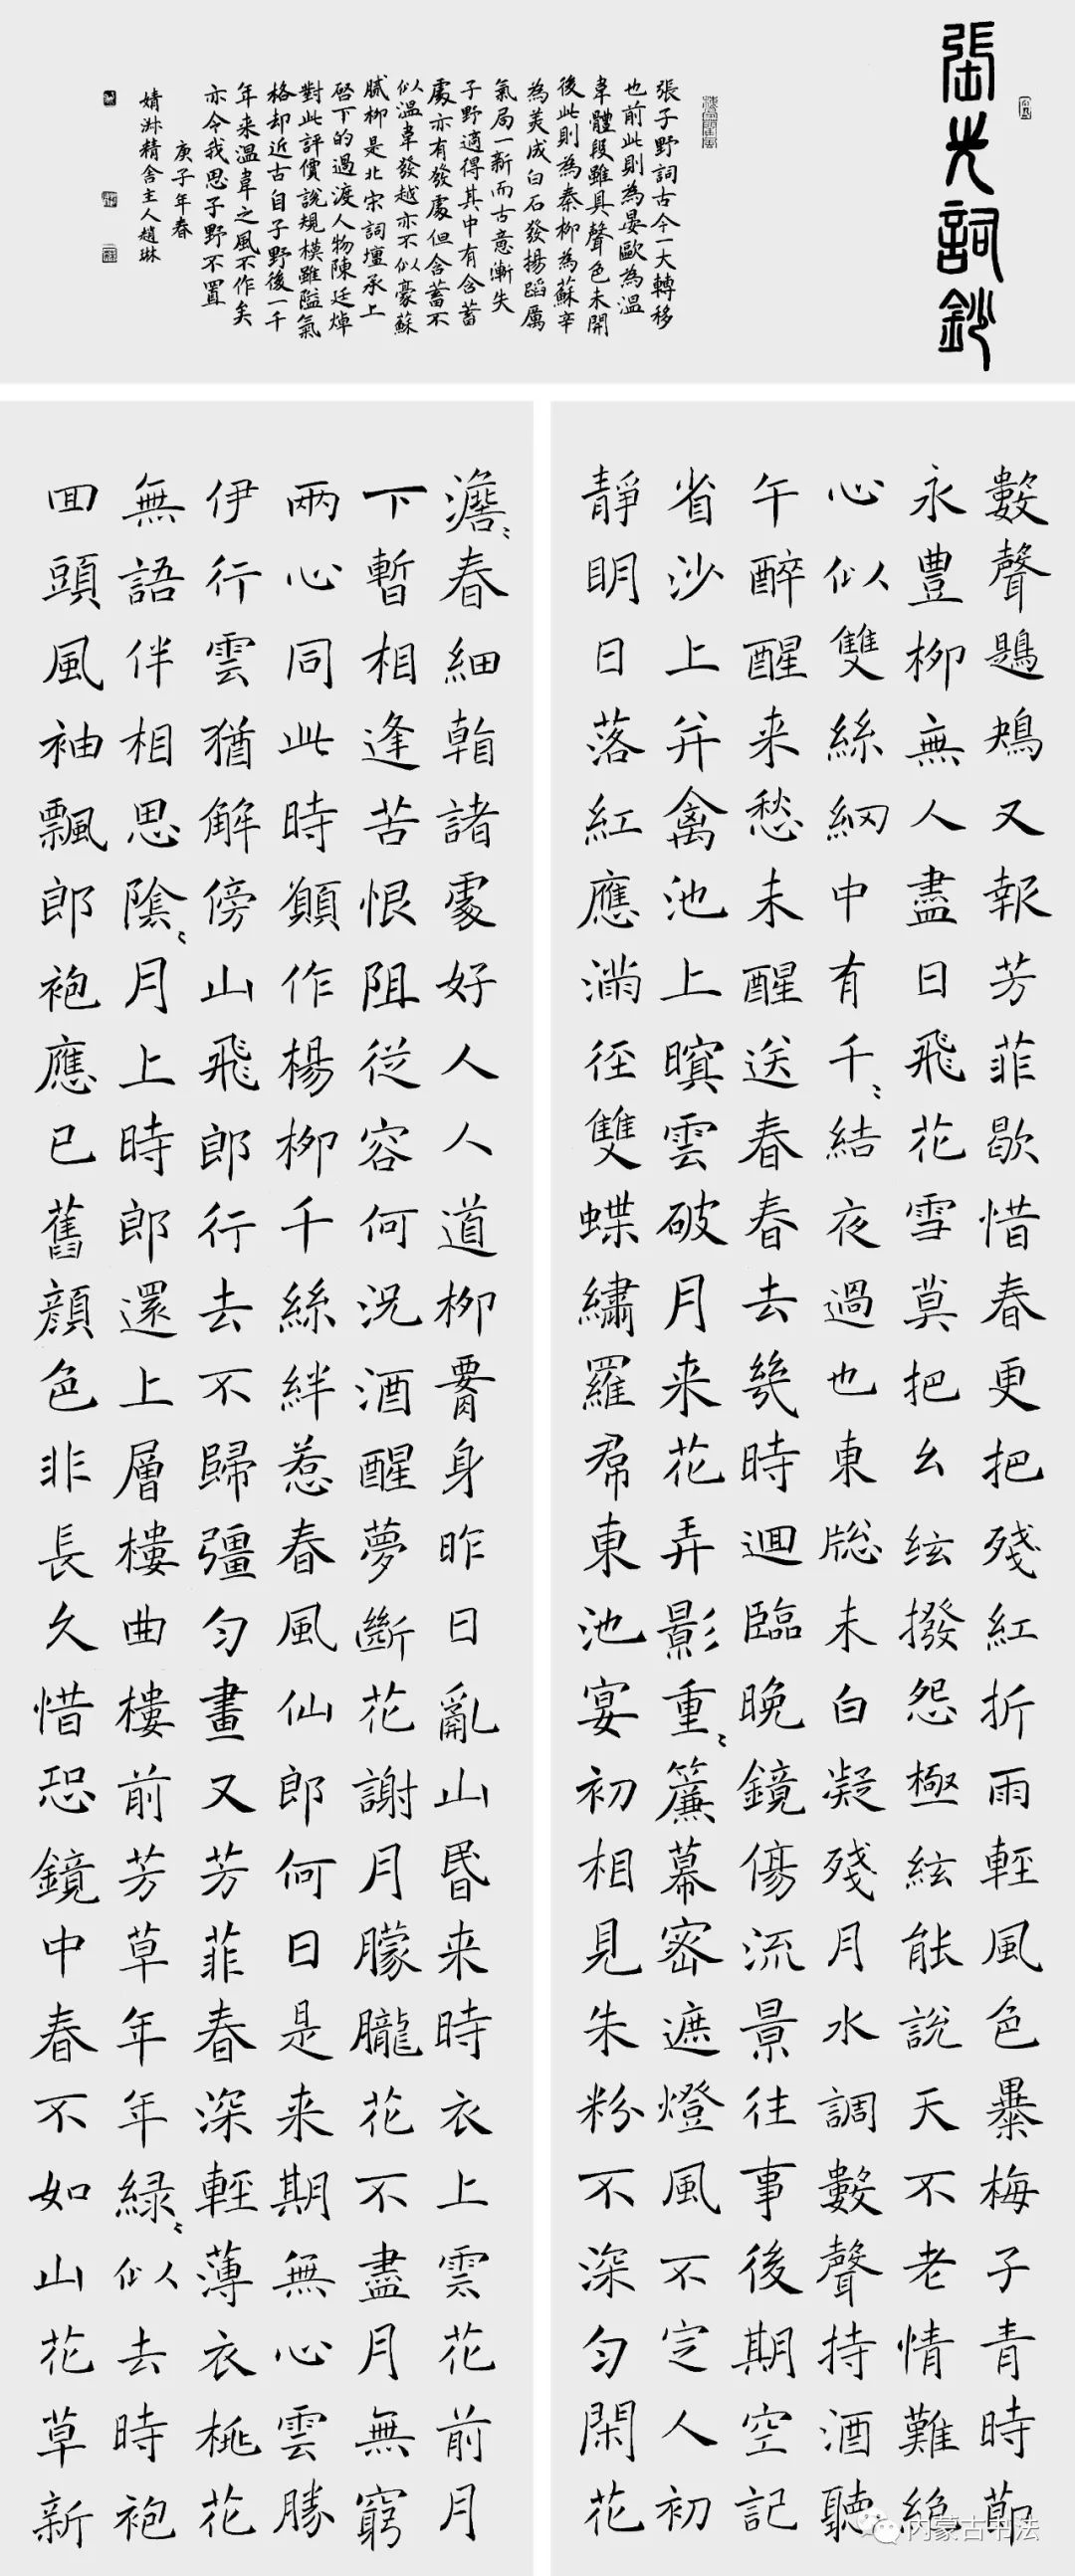 張先詞鈔
張子野詞古今一大轉移
也前此則為晏歐為溫
韋體段雖具聲色未開
後此則為秦柳為蘇辛
為美成白石發揚蹈厲
氣局一新而古意漸失
子野適得其中有含蓄
處亦有發處但含蓄不
似溫韋發越亦不似豪蘇
膩柳是北宋詞壇承上
啓下的過渡人物陳廷焯
對此評價說規模雖隘氣
格却近古自子野後一千
年来溫韋之風不作矣
亦令我思子野不置
庚子年春
婧淋精舍主人趙琳
數聲鶗鴂又報芳菲歇惜春更把殘紅折雨輕風色暴梅子青時節
永豐柳無人盡日飛花雪莫把幺絃撥怨極絃能說天不老情難絶
心似雙絲網中有千〻結夜過也東牕未白凝殘月水調數聲持酒聽
午醉醒来愁未醒送春春去幾時迴臨晚鏡傷流景往事後期空記
省沙上并禽池上暝雲破月来花弄影重〻簾幕密遮燈風不定人初
靜明日落紅應滿徑雙蝶繡羅帬東池宴初相見朱粉不深勻閑花
澹〻春細看諸處好人人道柳腰身昨日亂山昏来時衣上雲花前月
下暫相逢苦恨阻從容何況酒醒夢斷花謝月朦朧花不盡月無窮
兩心同此時願作楊柳千絲絆惹春風仙郎何日是来期無心雲勝
伊行雲猶解傍山飛郎行去不歸彊勻畫又芳菲春深輕薄衣桃花
無語伴相思陰〻月上時郎還上層樓曲樓前芳草年年綠〻似去時袍
回頭風袖飄郎袍應已舊顏色非長久惜恐鏡中春不如山花草新
内蒙古书法